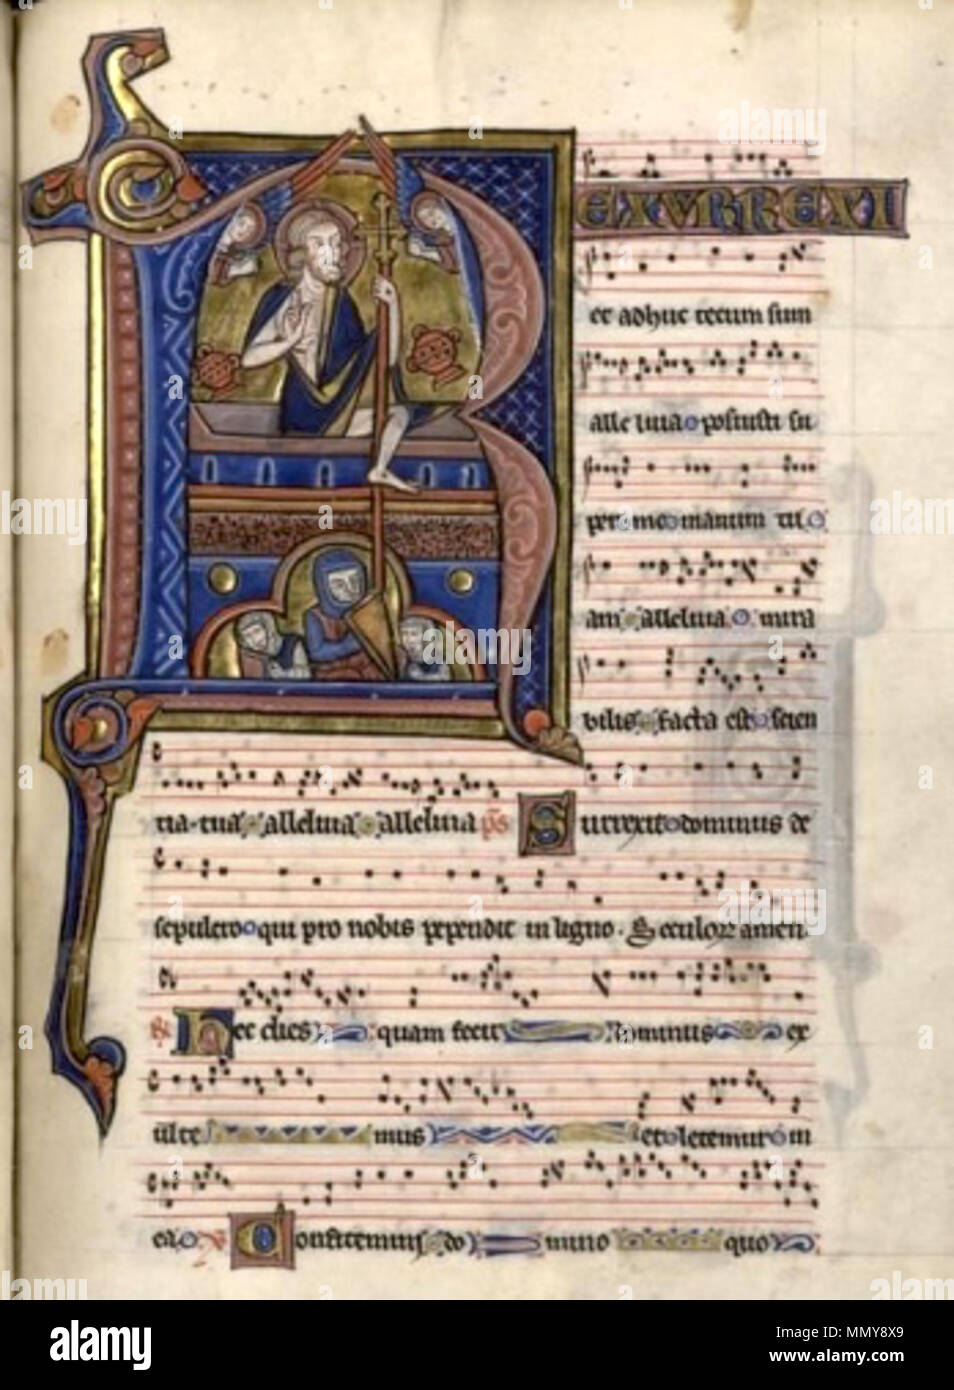 REXURREXI
et adhuc tecum sum
alleluia posuisti su
per me manum tu
am alleluia mira
bilis facta est scien
tia tua alleluia alleluia ps Surrexit dominus de
sepulcro qui pro nobis pependit in ligno. Seculorum amen.
Hec dies quam fecit dominus ex
ulte mus et letemur in
ea Confitemini do mino quo
alamy
Image ID: MMY8X9
www.alamy.com